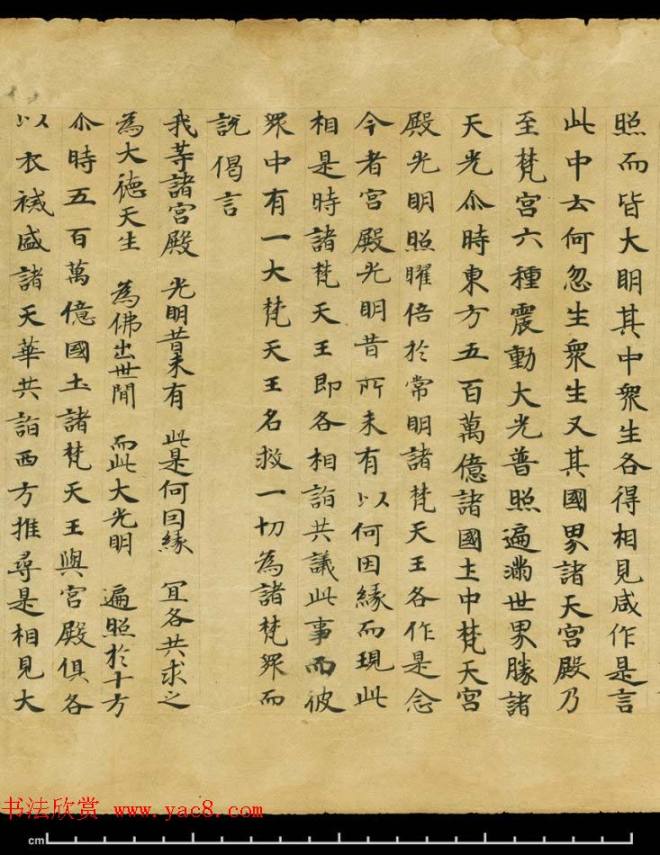 照而皆大明其中衆生各得相見咸作是言
此中云何忽生衆生又其國界諸天宮殿乃
至梵宮六種震動大光普照遍滿世界勝諸
天光尒時東方五百萬億諸國土中梵天宮
殿光明照曜倍於常明諸梵天王各作是念
今者宮殿光明昔所未有以何因緣而現此
相是時諸梵天王即各相詣共議此事而彼
衆中有一大梵天王名救一切為諸梵衆而
說偈言
我等諸宮殿 光明昔未有 此是何因緣 冝各共求之
為大德天生 為佛出世間 而此大光明 遍照於十方
尒時五百萬億國土諸梵天王與宮殿俱各
以衣裓盛諸天華共詣西方推尋是相見大
书法欣赏 www.yac8.com
cm